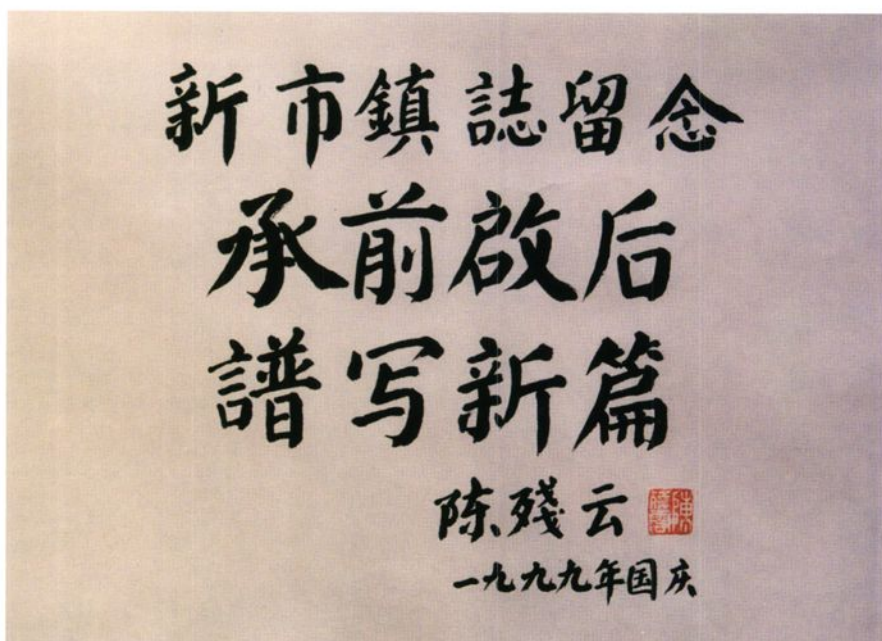 新市鎮誌留念
承前啟后
譜写新篇
陈殘云
一九九九年国庆